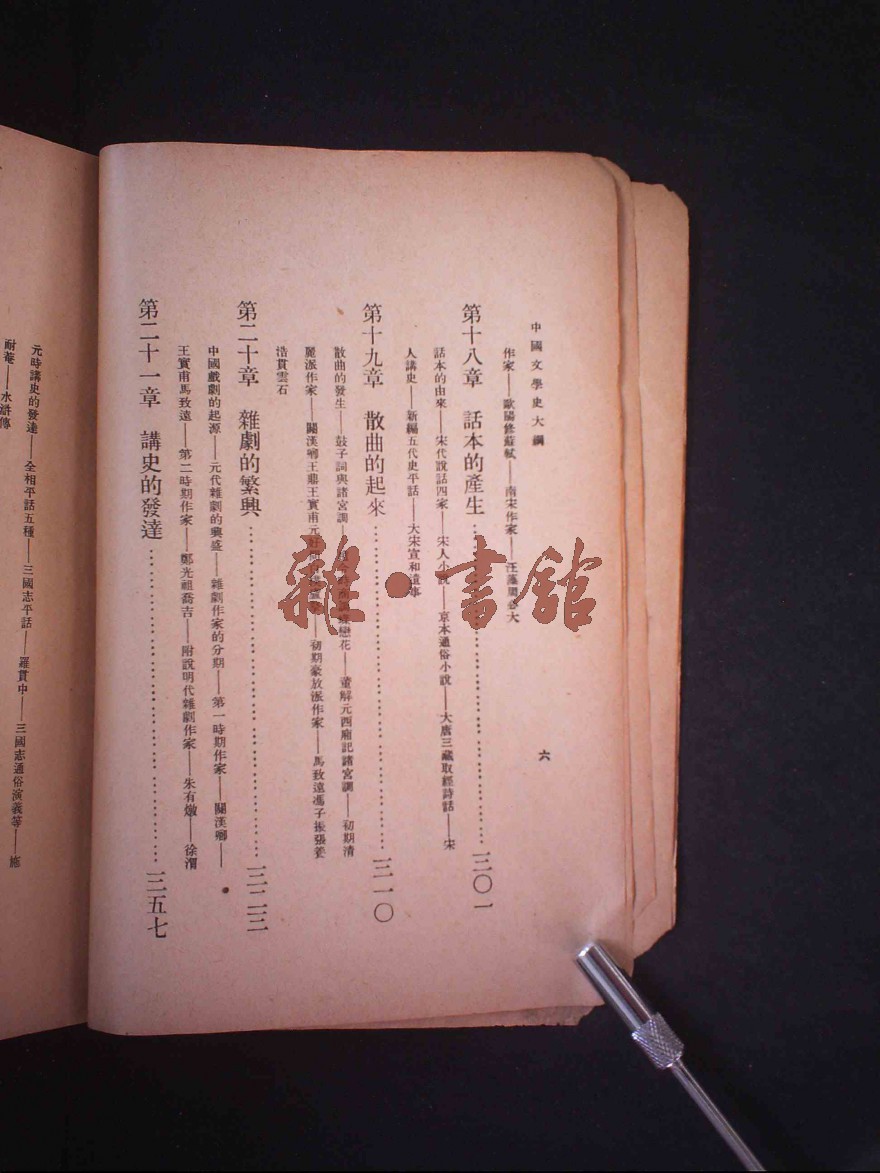 中國文學史大綱
六
作家——歐陽修蘇軾——南宋作家——汪藻周必大
第十八章　話本的產生………三〇一
話本的由來——宋代說話四家——宋人小說——京本通俗小說——大唐三藏取經詩話——宋
人講史——新編五代史平話——大宋宣和遺事
第十九章　散曲的起來………三一〇
散曲的發生——鼓子詞與諸宮調——戀花——董解元西廂記諸宮調——初期清
麗派作家——關漢卿王鼎王實甫元好問——初期豪放派作家——馬致遠馮子振張養
浩貫雲石
第二十章　雜劇的繁興………三二三
中國戲劇的起源——元代雜劇的興盛——雜劇作家的分期——第一時期作家——關漢卿——
王實甫馬致遠——第二時期作家——鄭光祖喬吉——附說明代雜劇作家——朱有燉——徐渭
第二十一章　講史的發達………三五七
元時講史的發達——全相平話五種——三國志平話——羅貫中——三國志通俗演義等——施
耐菴——水滸傳
雜·書館